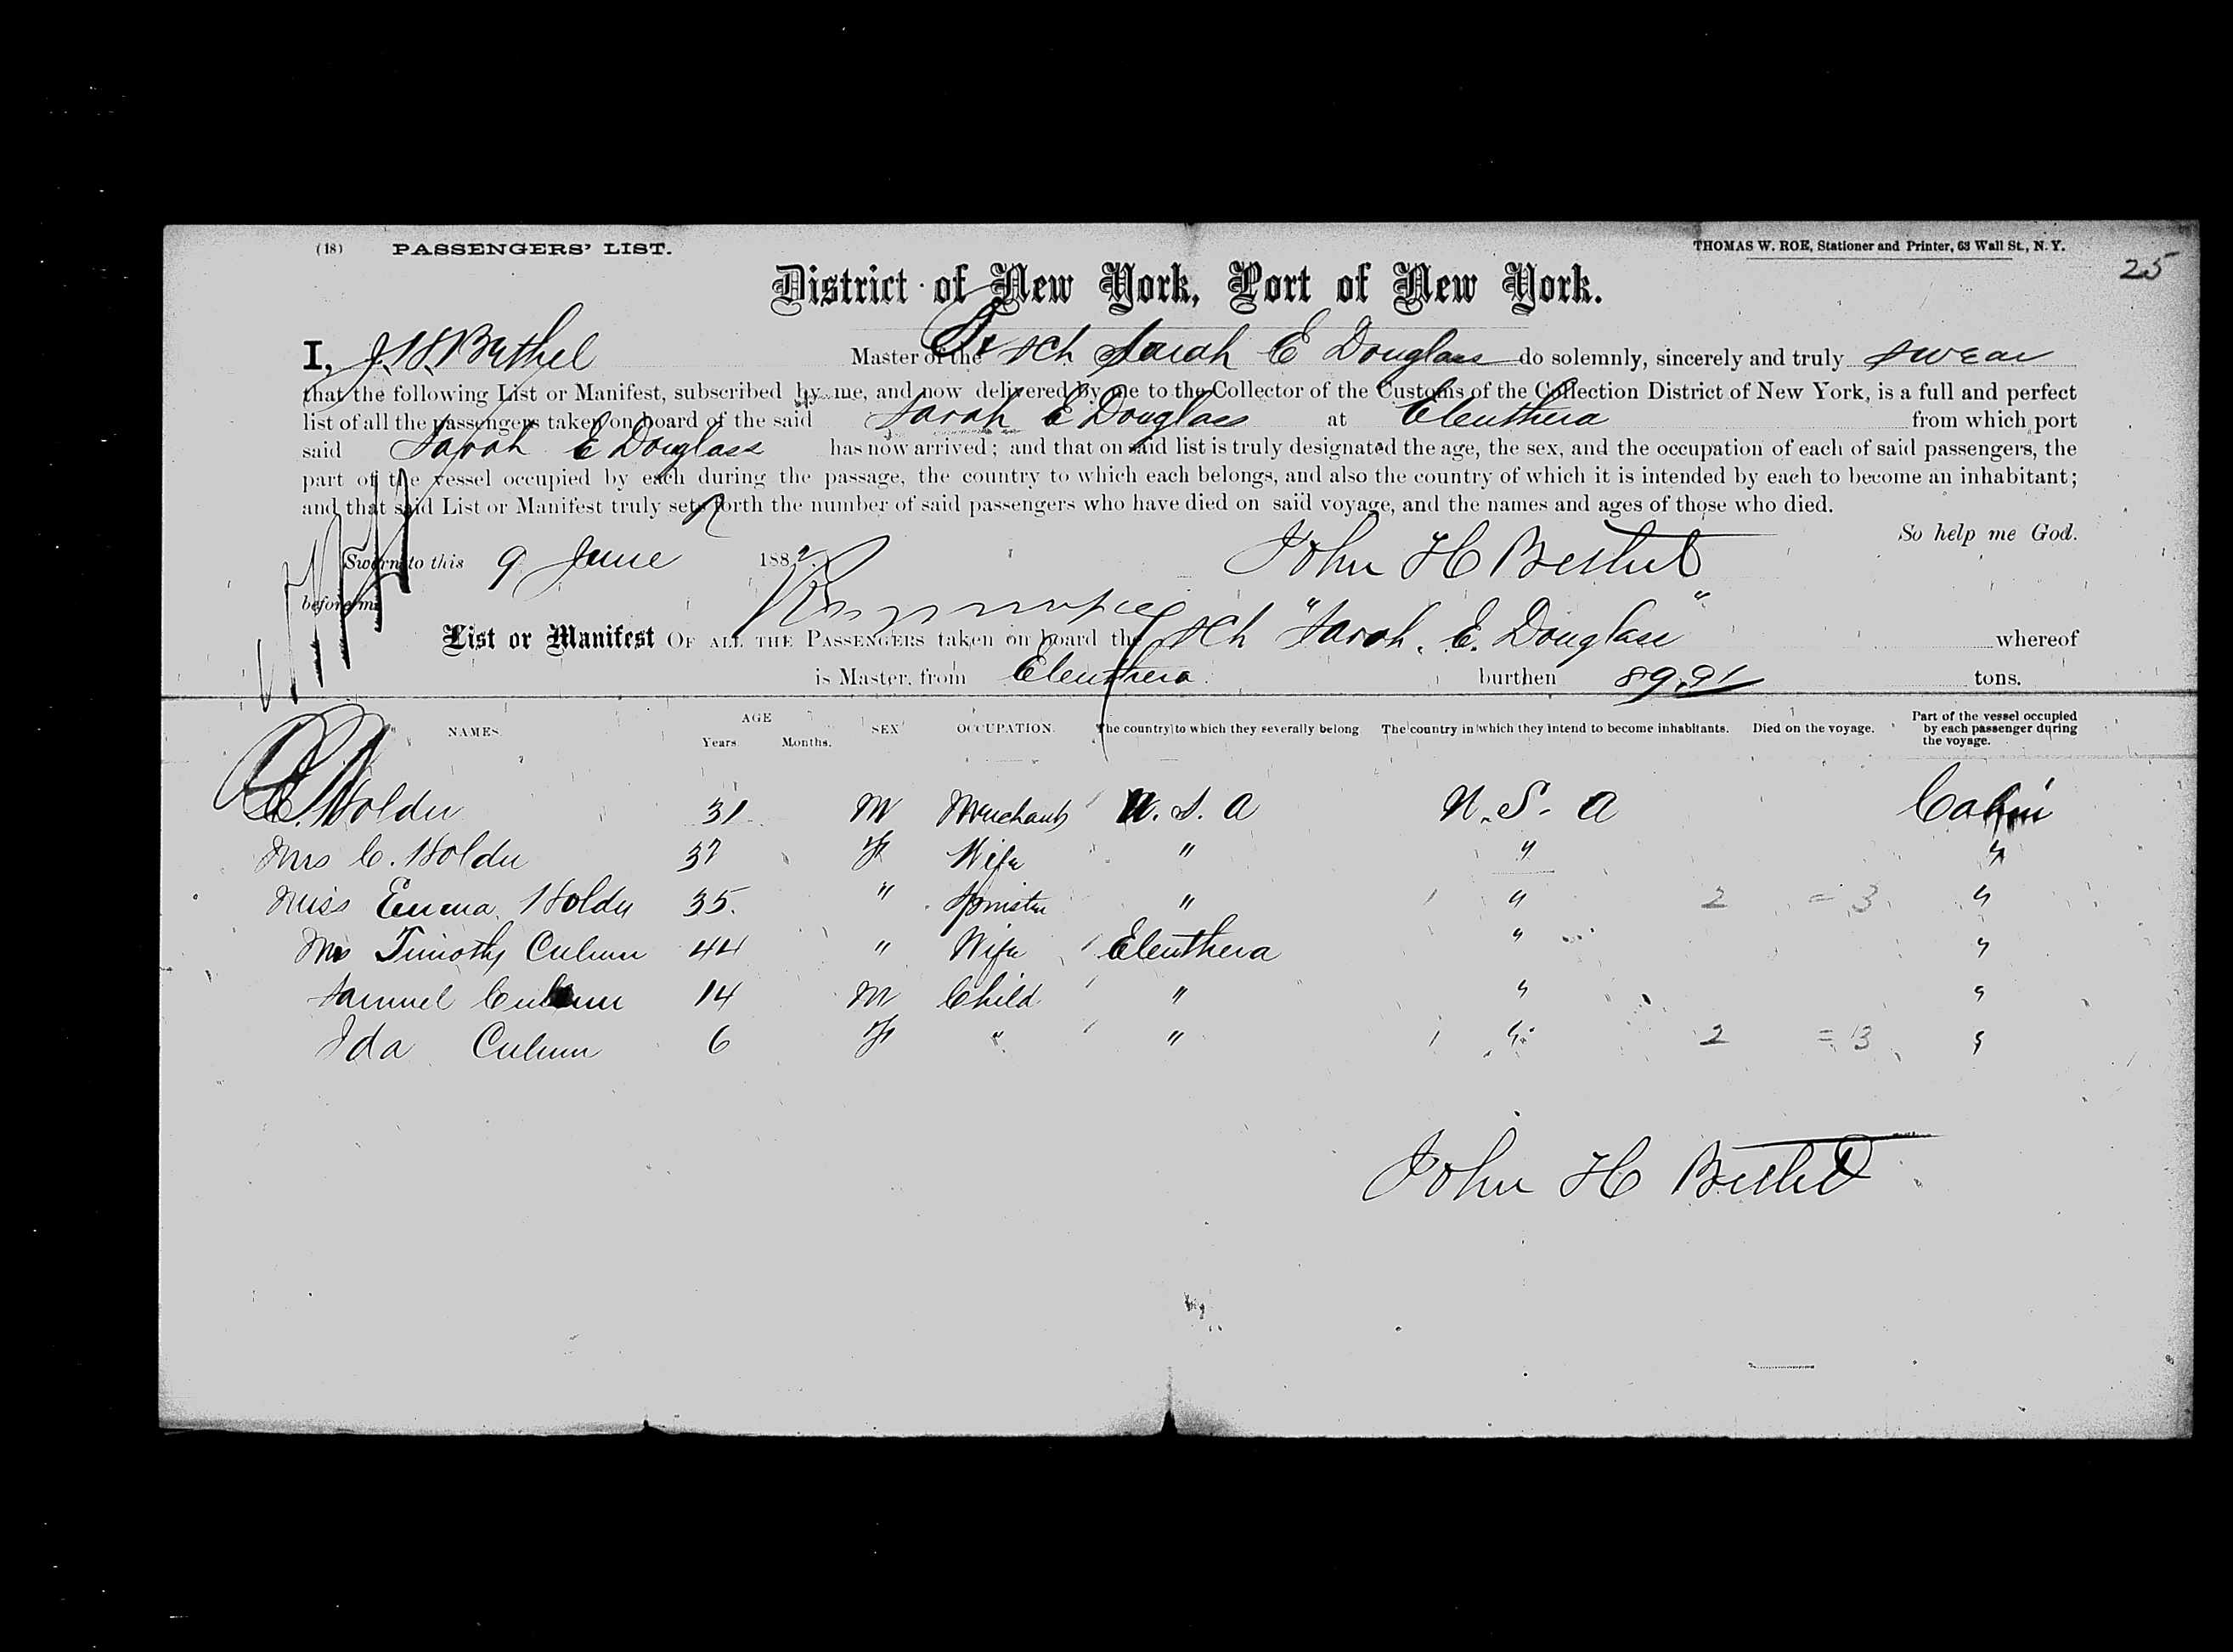 (18) PASSENGERS' LIST. THOMAS W. ROE, Stationer and Printer, 63 Wall St., N. Y.
25
District of New York, Port of New York.
I, J. H. Bethel Master of the Br Sch Sarah E Douglass do solemnly, sincerely and truly swear
that the following List or Manifest, subscribed by me, and now delivered by me to the Collector of the Customs of the Collection District of New York, is a full and perfect
list of all the passengers taken on board of the said Sarah E Douglass at Eleuthera from which port
said Sarah E Douglass has now arrived; and that on said list is truly designated the age, the sex, and the occupation of each of said passengers, the
part of the vessel occupied by each during the passage, the country to which each belongs, and also the country of which it is intended by each to become an inhabitant;
and that said List or Manifest truly sets forth the number of said passengers who have died on said voyage, and the names and ages of those who died.
So help me God.
Sworn to this 9 June 1882 John H Bethel
before me
List or Manifest OF ALL THE PASSENGERS taken on board the Sch "Sarah. E. Douglass" whereof
is Master, from Eleuthera burthen 89.91 tons.
NAMES AGE Years Months. SEX OCCUPATION. The country to which they severally belong The country in which they intend to become inhabitants. Died on the voyage. Part of the vessel occupied by each passenger during the voyage.
C. Holder 31 M Merchant U. S. A U. S. A Cabin
Mrs C. Holder 37 F Wife " " "
Miss Emma Holder 35. " Spinster " " 2 = 3 "
Mrs Timothy Culmer 44 " Wife Eleuthera " "
Samuel Culmer 14 M Child " " "
Ida Culmer 6 F " " " 2 = 3 "
John H Bethel